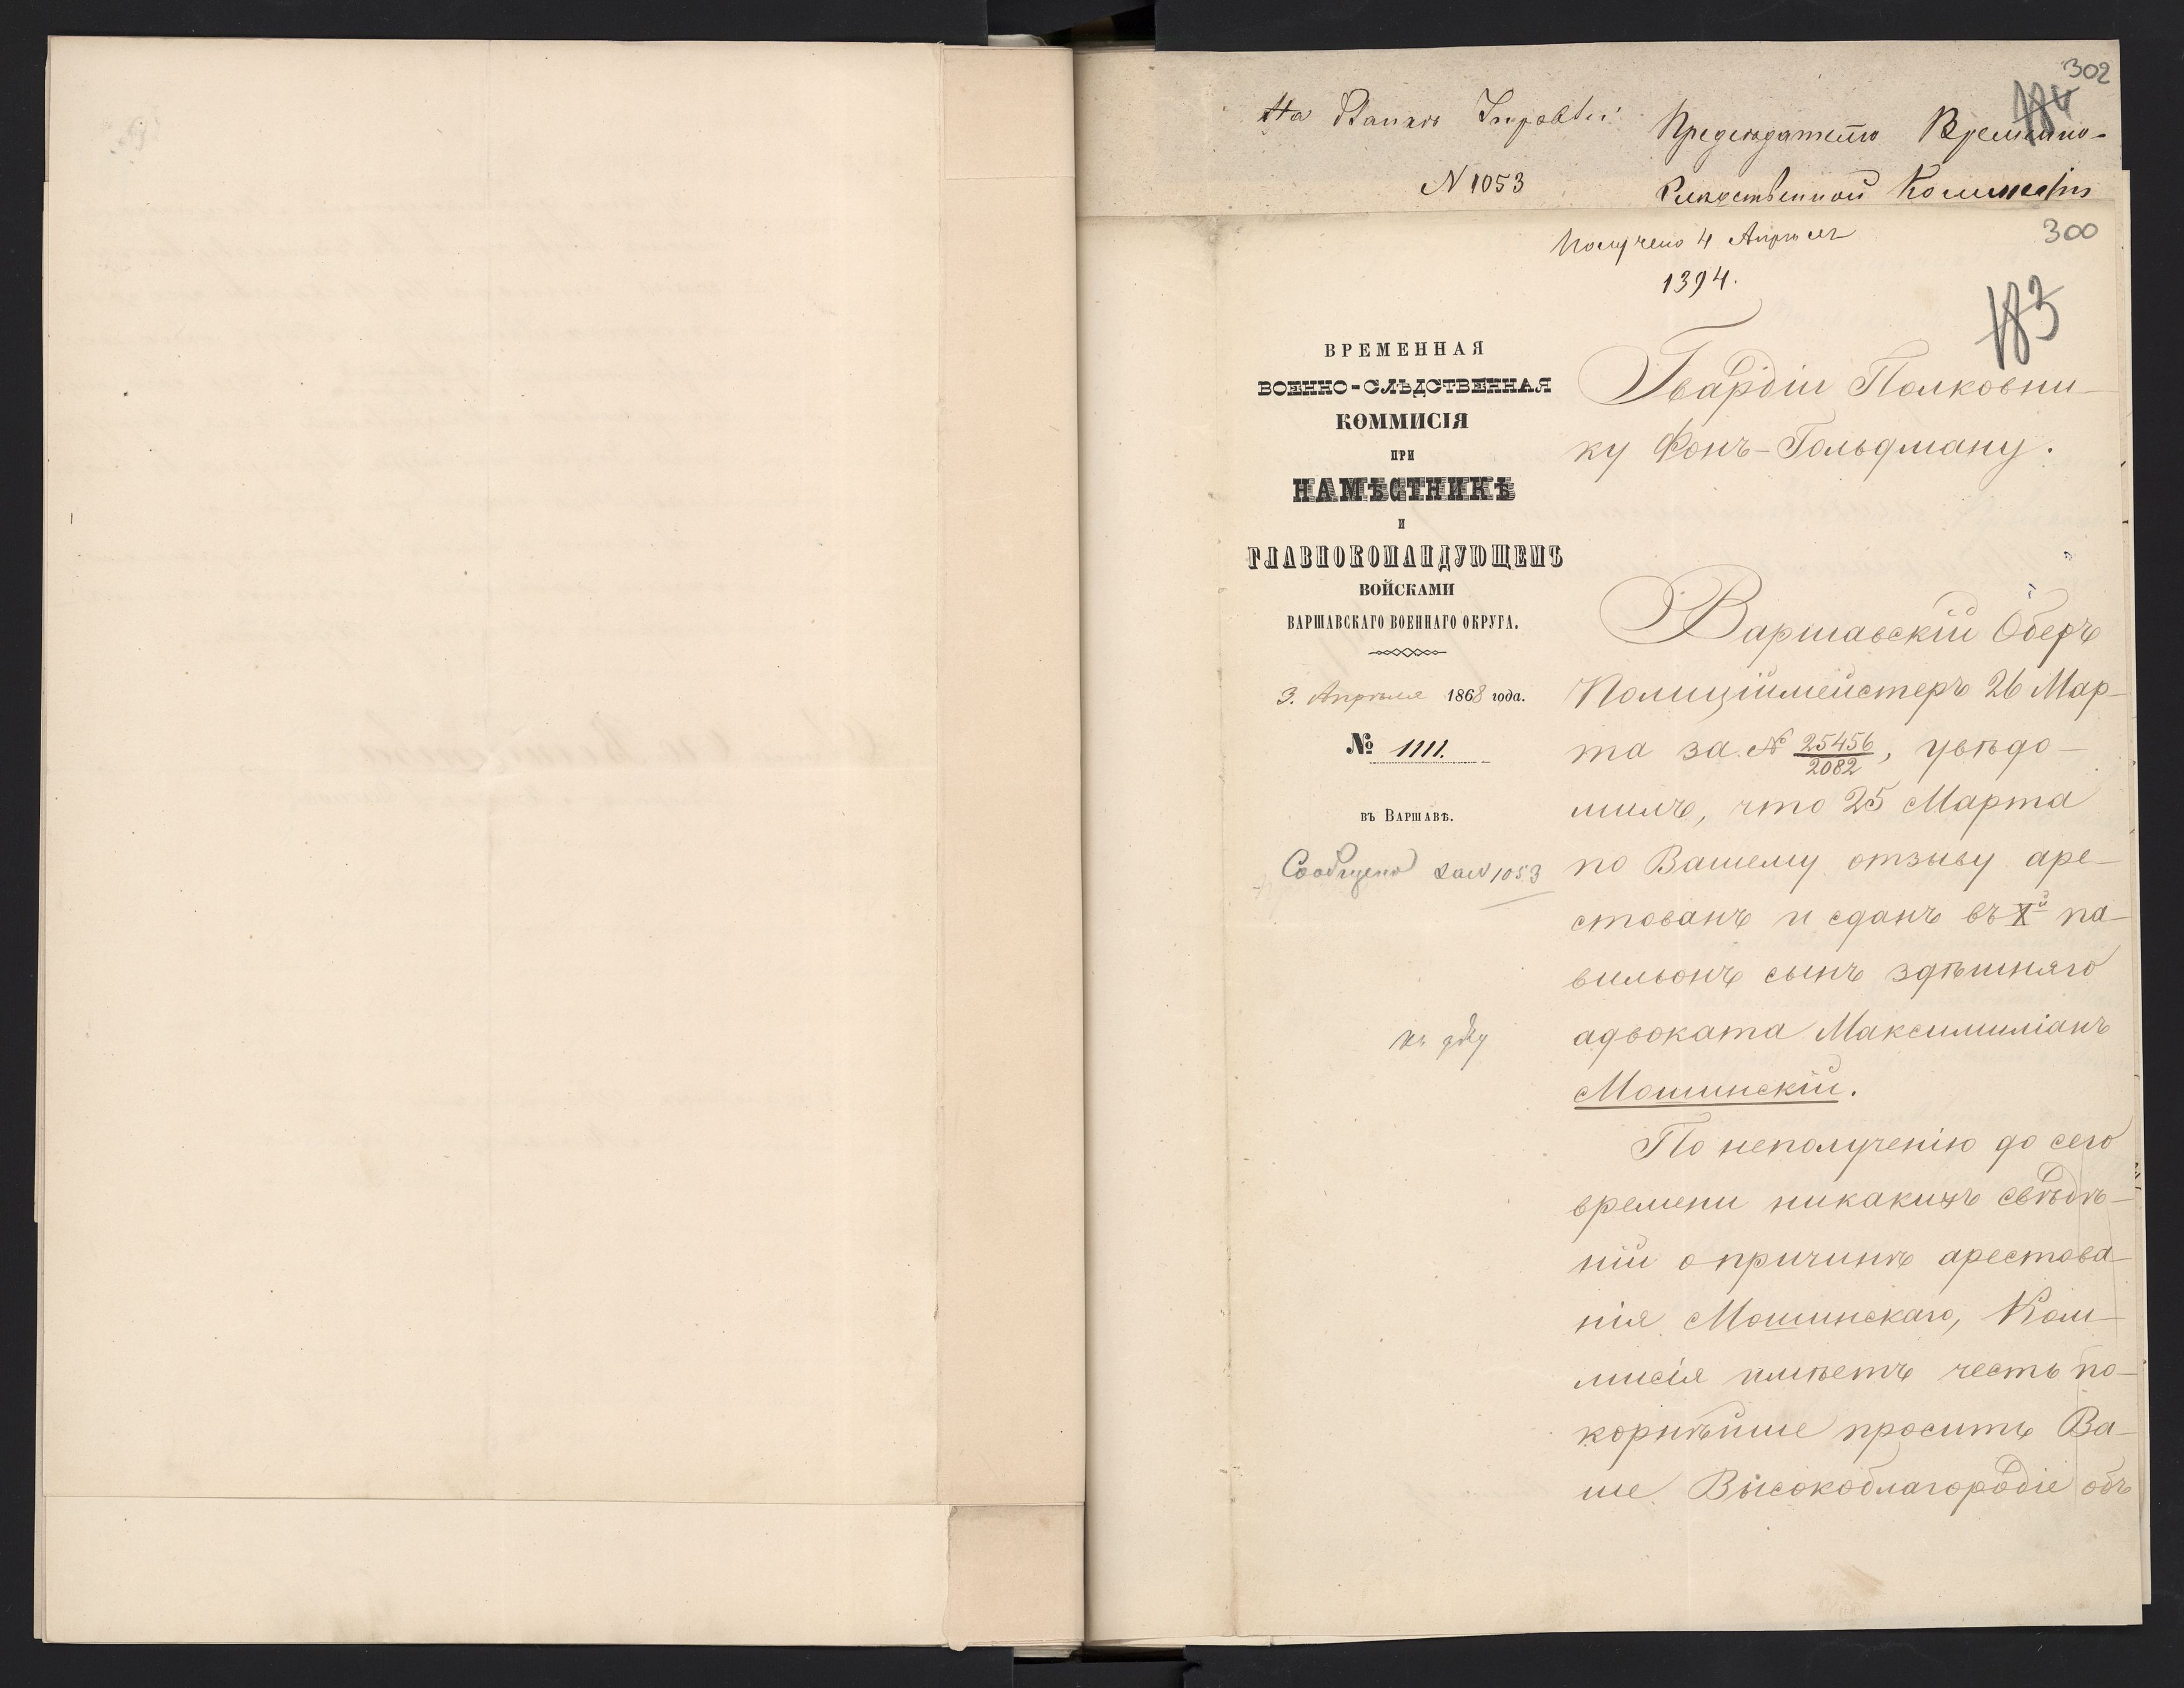 302
184
На
Предсѣдателю Временно-
№ 1053
Слѣдственной Коммисіи
Получено 4 Апрѣля
1394.
300
183
ВРЕМЕННАЯ
ВОЕННО-СЛѢДСТВЕННАЯ
КОММИСІЯ
ПРИ
НАМѢСТНИКѢ
И
ГЛАВНОКОМАНДУЮЩЕМЪ
ВОЙСКАМИ
ВАРШАВСКАГО ВОЕННАГО ОКРУГА.
3. Апрѣля 1868 года.
№ 1111.
въ Варшавѣ.
Сообщено за № 1053
къ дѣлу
Гвардіи Полковни-
ку Фонъ-Гольдману.
Варшавскій Оберъ
Полиціймейстеръ 26 Мар-
та за № 25456/2082, увѣдо-
милъ, что 25 Марта
по Вашему отзыву аре-
стованъ и сданъ въ Xй па-
вильонъ сынъ здѣшняго
адвоката Максимиліанъ
Мошинскій.
По неполученію до сего
времени никакихъ свѣдѣ-
ній о причинѣ арестова-
нія Мошинскаго, Ком-
мисія имѣетъ честь по-
корнѣйше просить Ва-
ше Высокоблагородіе объ